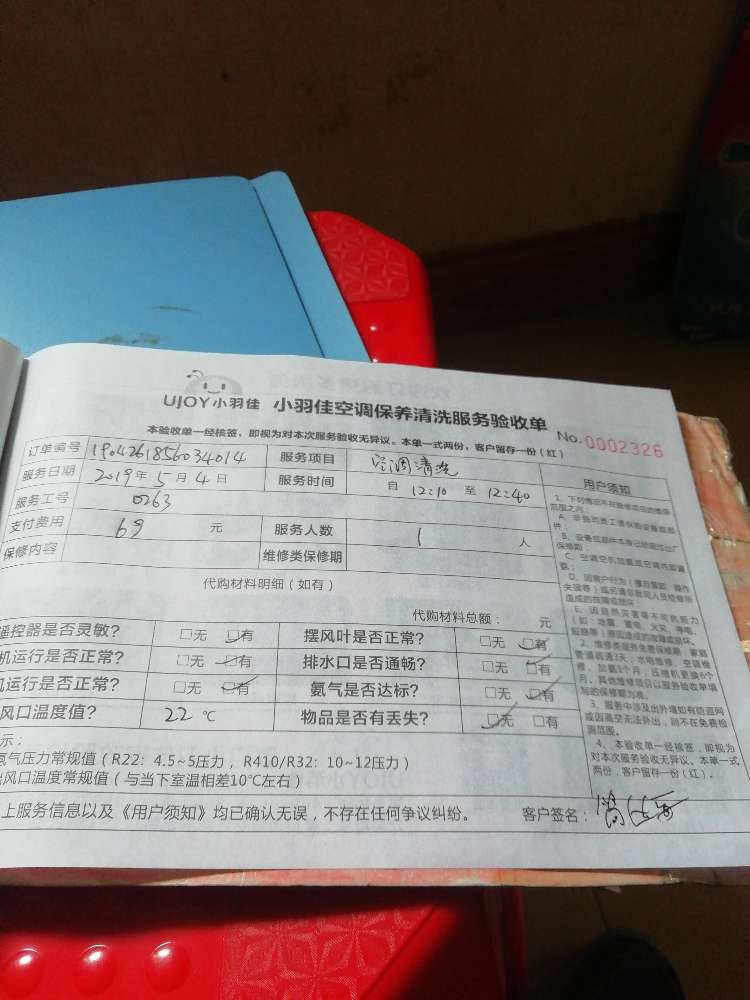 UJOY小羽佳 小羽佳空调保养清洗服务验收单
本验收单一经核签，即视为对本次服务验收无异议。本单一式两份，客户留存一份（红） No.0002326
订单编号 1904261856034014 服务项目 空调清洗
服务日期 2019年5月4日 服务时间 自 12:10 至 12:40
服务工号 0263
支付费用 69 元 服务人数 1 人
保修内容 维修类保修期
代购材料明细（如有）
代购材料总额： 元
遥控器是否灵敏？ □无 □有 摆风叶是否正常？ □无 □有
机运行是否正常？ □无 □有 排水口是否通畅？ □无 □有
机运行是否正常？ □无 □有 氨气是否达标？ □无 □有
风口温度值？ 22 ℃ 物品是否有丢失？ □无 □有
示：
氨气压力常规值（R22：4.5~5压力，R410/R32：10~12压力）
出风口温度常规值（与当下室温相差10℃左右）
上服务信息以及《用户须知》均已确认无误，不存在任何争议纠纷。 客户签名：
用户须知
1、下列情况不在整修类应的维保
范围之内：
3、服务中涉及出外墙如有防盗网
或因高空无法外出，则不在免费检
测范围。
4、本验收单一经核签，即视为
对本次服务验收无异议。本单一式
两份，客户留存一份（红）。